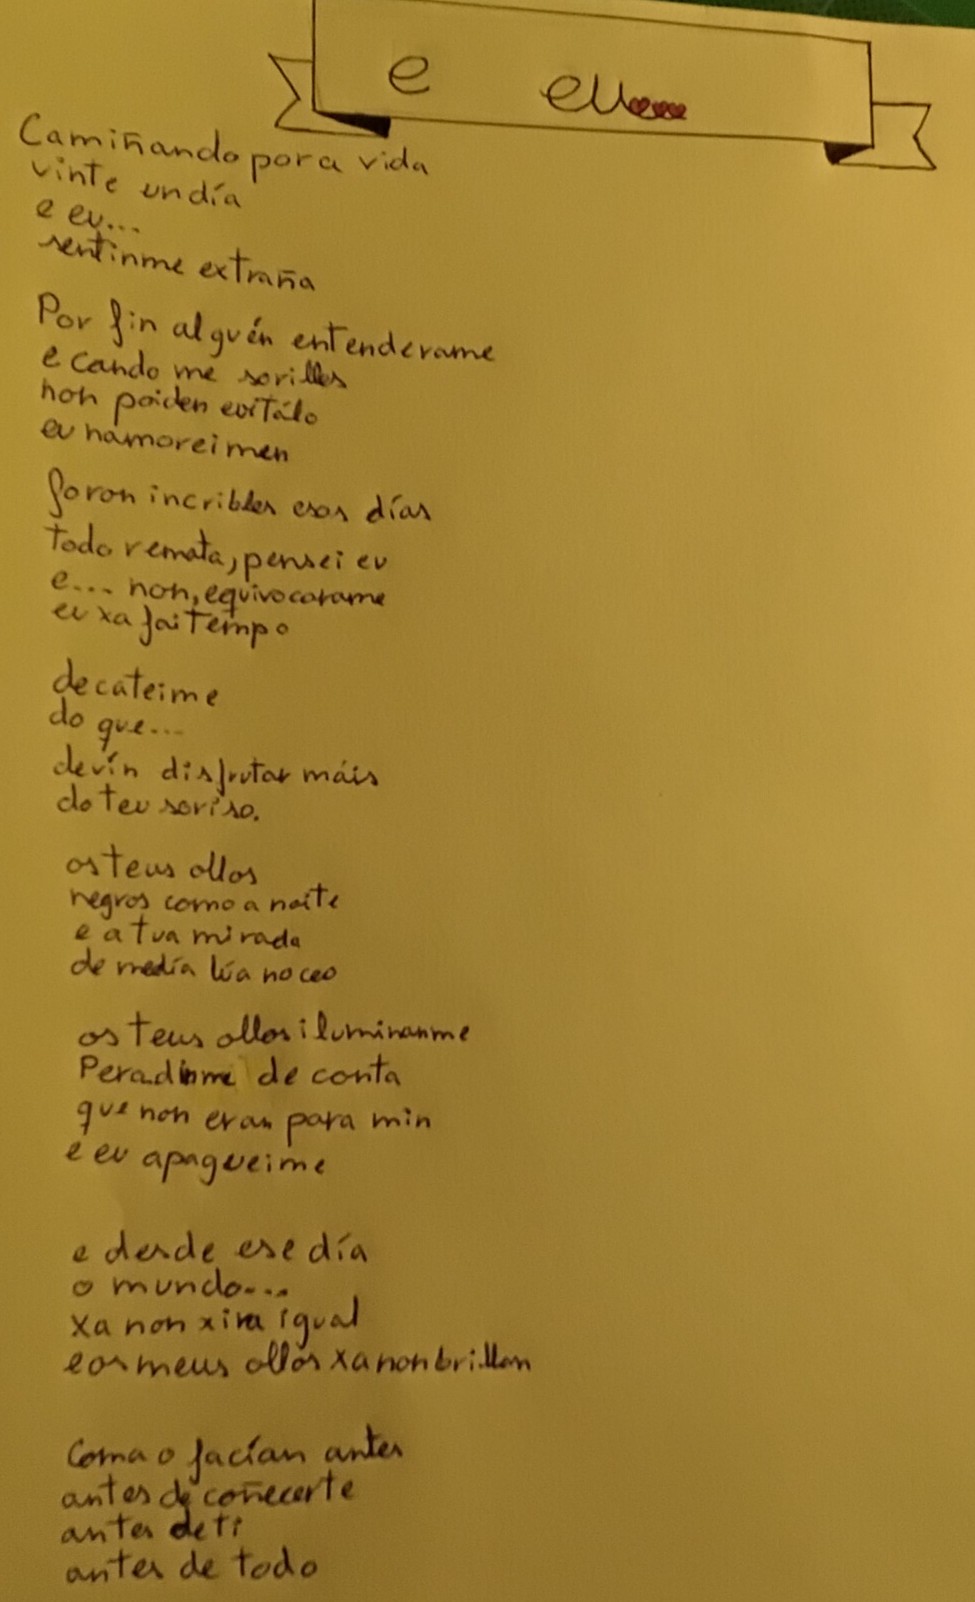 e eu...
Camiñando por a vida
vinte un día
e eu...
sentinme extraña
Por fin alguén entenderame
e cando me soriches
non poiden evitálo
eu namoreimen
foron incribles esos días
todo remata, pensei eu
e... non, equivocarame
eu xa fai tempo
decateime
do que...
devín disfrutar máis
do teu soriso.
os teus ollos
negros como a noite
e a tua mirada
de media lúa no ceo
os teus ollos iluminanme
Peradinme de conta
que non eran para min
e eu apagueime
e desde ese día
o mundo...
xa non xira igual
e os meus ollos xa non brillan
Coma o facían antes
antes de coñecerte
antes de ti
antes de todo